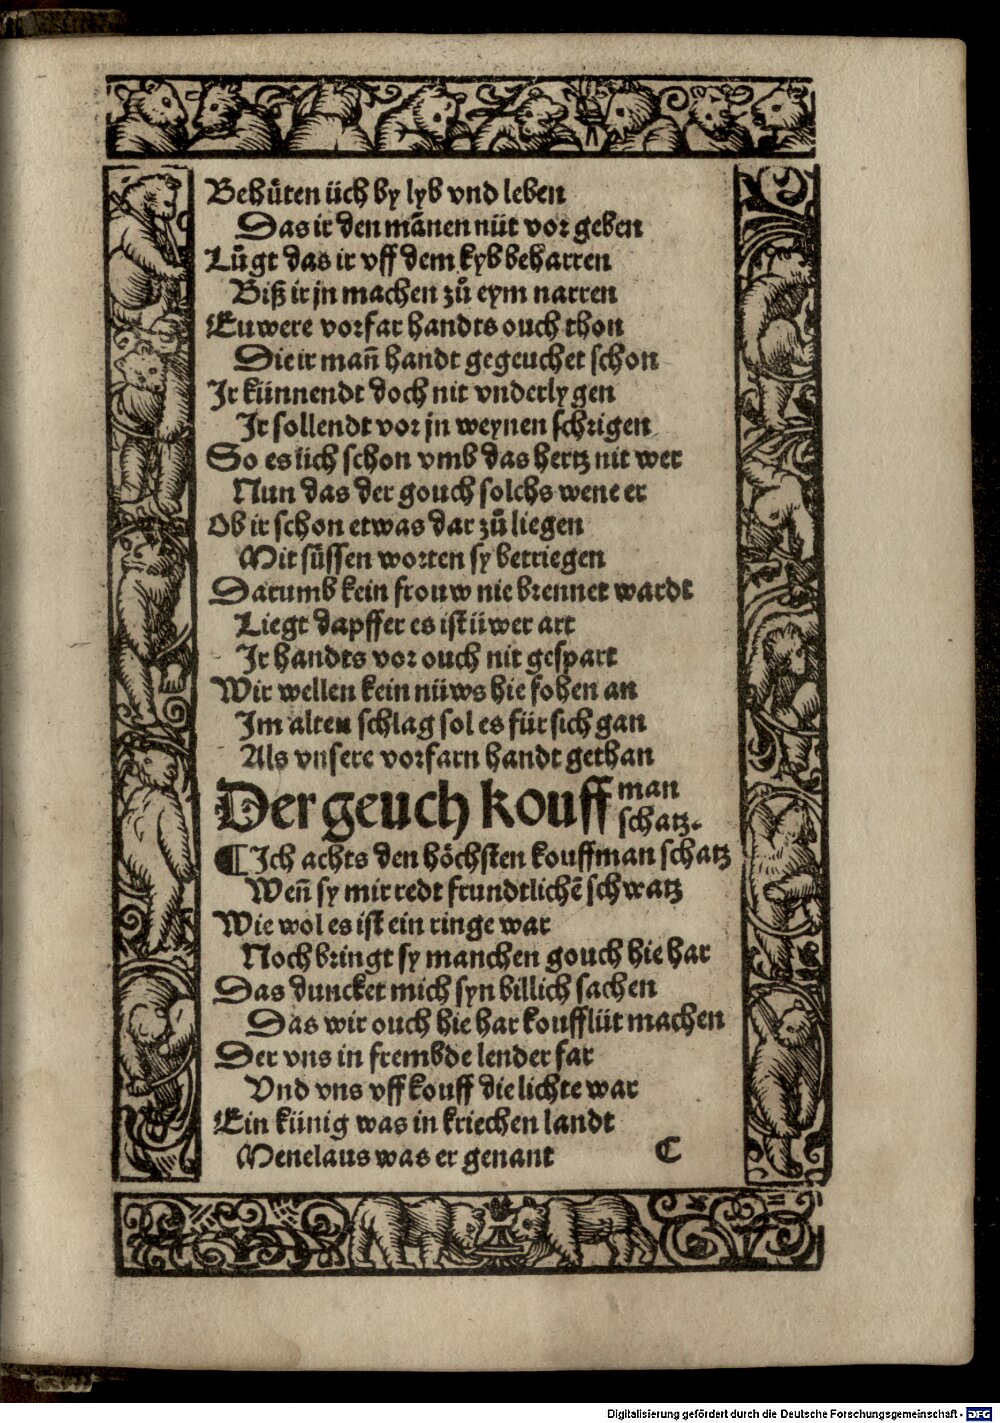 Behuͤten üch by lyb vnd leben
Das ir den mãnen nüt vor geben
Luͦgt das ir vff dem kyb beharren
Biß ir jn machen zuͦ eym narren
Euwere vorfar handts ouch thon
Die ir mañ handt gegeuchet schon
Ir künnendt doch nit vnderlygen
Ir sollendt vor jn weynen schrigen
So es üch schon vmb das hertz nit wer
Nun das der gouch solchs wene er
Ob ir schon etwas dar zuͦ liegen
Mit suͤssen worten sy betriegen
Darumb kein frouw nie brennet wardt
Liegt dapffer es ist üwer art
Ir handts vor ouch nit gespart
Wir wellen kein nüws hie fohen an
Im alten schlag sol es für sich gan
Als vnsere vorfarn handt gethan
Der geuch kouff man
schatz.
¶ Ich achts den höchsten kouffman schatz
Weñ sy mir redt frundtlichẽ schwatz
Wie wol es ist ein ringe war
Noch bringt sy manchen gouch hie har
Das duncket mich syn billich sachen
Das wir ouch hie har koufflüt machen
Der vns in frembde lender far
Vnd vns vff kouff die lichte war
Ein künig was in kriechen landt
Menelaus was er genant C
Digitalisierung gefördert durch die Deutsche Forschungsgemeinschaft - DFG